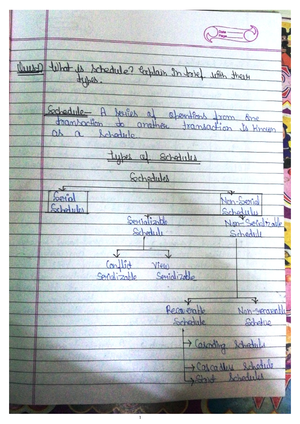 Ques:1 What is schedule? Explain in brief with their
types.
Schedule:- A series of operations from one
transaction to another transaction is known
as a schedule.
Types of Schedules
Schedules
Serial
Schedules
Non-Serial
Schedule
Serializable
Schedule
Non-Serializable
Schedule
Conflict
Serializable
View
Serializable
Recoverable
Schedule
Non-recoverable
Schedule
Cascading Schedule
Cascadless Schedule
Strict Schedules
1